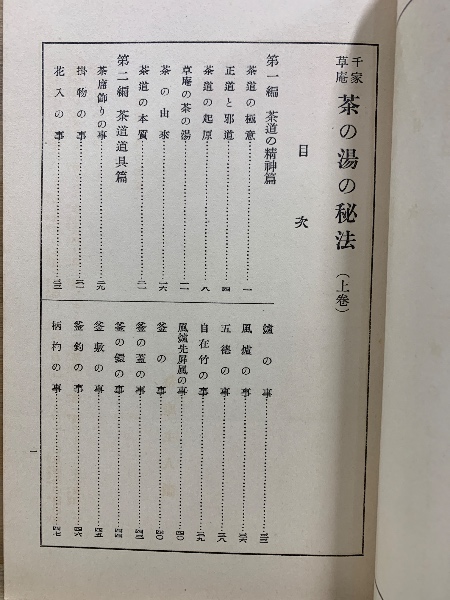 千家
草庵
茶の湯の秘法（上巻）
目次
第一編 茶道の精神篇
茶道の極意…………一
正道と邪道…………四
茶道の起原…………八
草庵の茶の湯…………一一
茶の由來…………一六
茶道の本質…………二一
第二編 茶道道具篇
茶席飾りの事…………二九
掛物の事…………三一
花入の事…………三三
爐の事
風爐の事
五德の事…………三八
自在竹の事…………三九
風爐先屏風の事…………四〇
釜の事…………四〇
釜の蓋の事
釜の鐶の事
釜敷の事…………四五
釜釣の事…………四六
柄杓の事…………四七
一